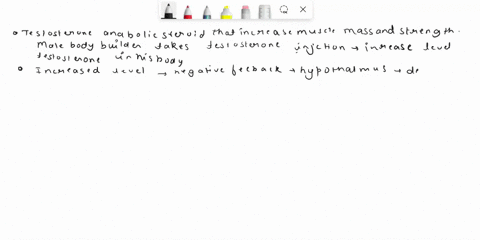 Testosterone anabolic steroid that increase muscle mass and strength.
Male body builder takes testosterone injection → increase level
testosterone in his body
Increased level → negative feeback → hypothalmus → de